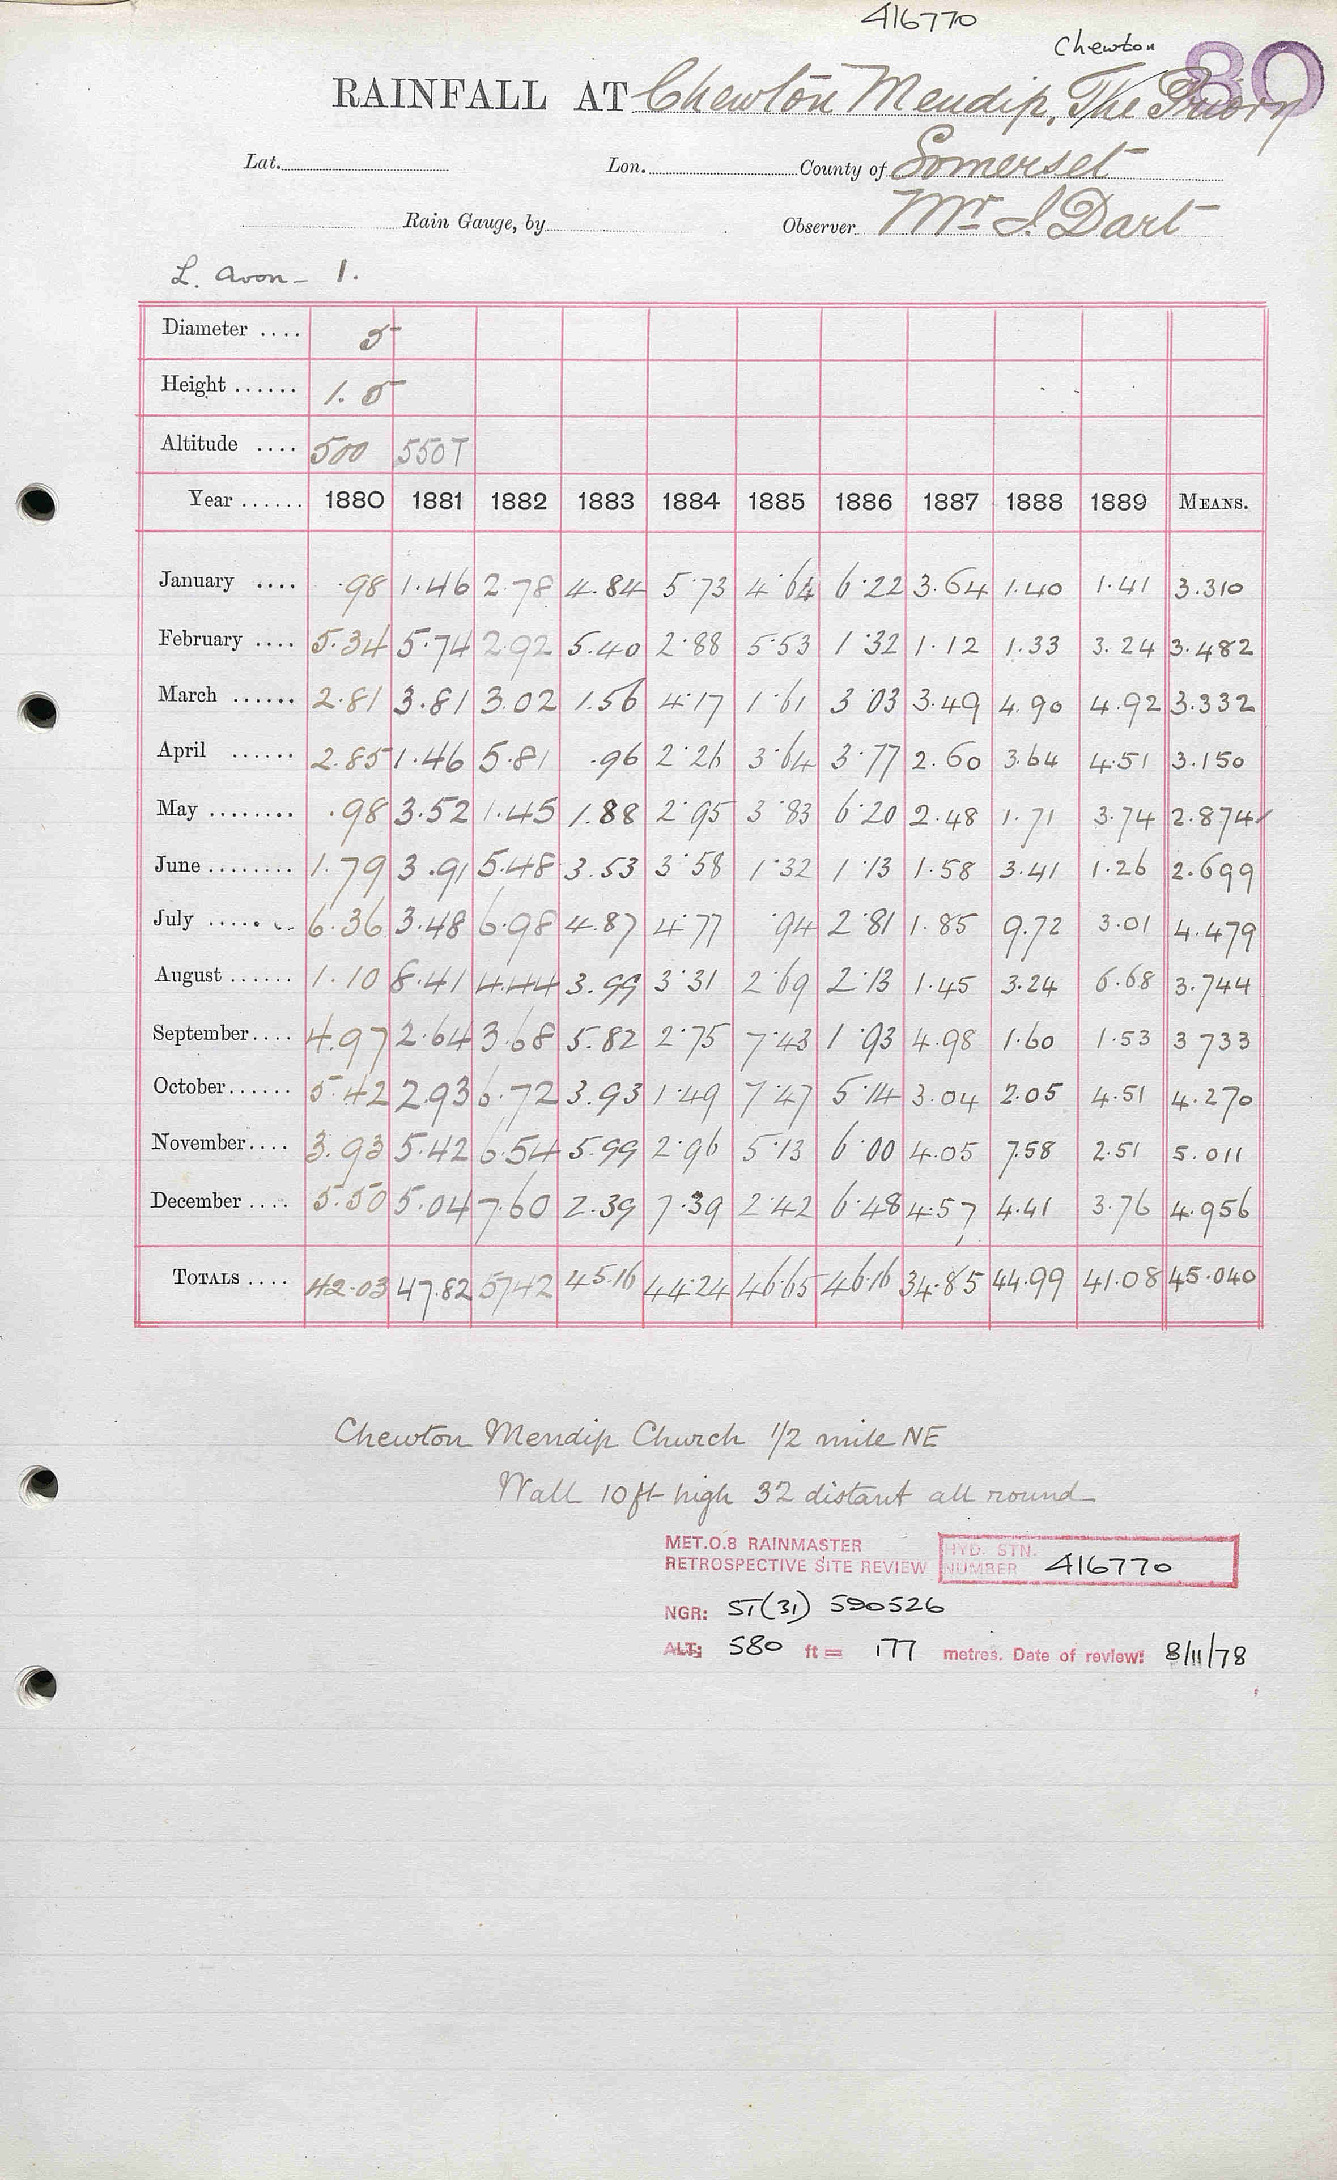 416770
Chewton
80
RAINFALL AT Chewton Mendip, The Priory
Lat. Lon. County of Somerset
Rain Gauge, by Observer Mr J. Dart
L. Avon - 1.
Diameter .... 5
Height ...... 1.5
Altitude .... 500 550T
Year ...... 1880 1881 1882 1883 1884 1885 1886 1887 1888 1889 MEANS.
January .... .98 1.46 2.78 4.84 5.73 4.64 6.22 3.64 1.40 1.41 3.310
February .... 5.34 5.74 2.92 5.40 2.88 5.53 1.32 1.12 1.33 3.24 3.482
March ...... 2.81 3.81 3.02 1.56 4.17 1.61 3.03 3.49 4.90 4.92 3.332
April ...... 2.85 1.46 5.81 .96 2.26 3.64 3.77 2.60 3.64 4.51 3.150
May ........ .98 3.52 1.45 1.88 2.95 3.83 6.20 2.48 1.71 3.74 2.874
June ........ 1.79 3.91 5.48 3.53 3.58 1.32 1.13 1.58 3.41 1.26 2.699
July ........ 6.36 3.48 6.98 4.87 4.77 .94 2.81 1.85 9.72 3.01 4.479
August ...... 1.10 8.41 4.44 3.99 3.31 2.69 2.13 1.45 3.24 6.68 3.744
September .... 4.97 2.64 3.68 5.82 2.75 7.43 1.93 4.98 1.60 1.53 3 733
October ...... 5.42 2.93 6.72 3.93 1.49 7.47 5.14 3.04 2.05 4.51 4.270
November .... 3.93 5.42 6.54 5.99 2.96 5.13 6.00 4.05 7.58 2.51 5.011
December .... 5.50 5.04 7.60 2.39 7.39 2.42 6.48 4.57 4.41 3.76 4.956
TOTALS .... 42.03 47.82 57.42 45.16 44.24 46.65 46.16 34.85 44.99 41.08 45.040
Chewton Mendip Church 1/2 mile NE
Wall 10ft high 32 distant all round
MET.O.8 RAINMASTER
RETROSPECTIVE SITE REVIEW
HYD. STN.
NUMBER 416770
NGR: ST(31) 590526
ALT: 580 ft = 177 metres. Date of review: 8/11/78